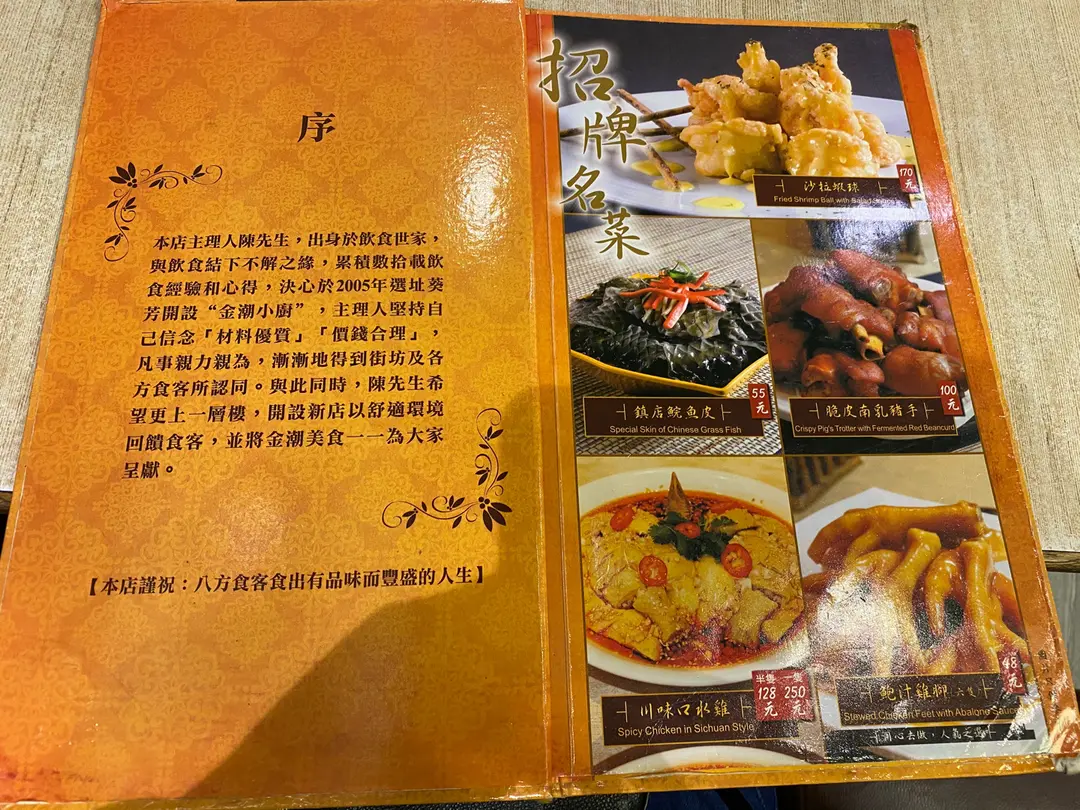 序
本店主理人陳先生，出身於飲食世家，
與飲食結下不解之緣，累積數拾載飲
食經驗和心得，決心於2005年選址葵
芳開設“金潮小廚”，主理人堅持自
己信念「材料優質」「價錢合理」，
凡事親力親為，漸漸地得到街坊及各
方食客所認同。與此同時，陳先生希
望更上一層樓，開設新店以舒適環境
回饋食客，並將金潮美食一一為大家
呈獻。
【本店謹祝：八方食客食出有品味而豐盛的人生】
招牌名菜
170元
沙拉蝦球
Fried Shrimp Ball with Salad Sauce
55元
鎮店鯇魚皮
Special Skin of Chinese Grass Fish
100元
脆皮南乳豬手
Crispy Pig's Trotter with Fermented Red Beancurd
半隻 128元
一隻 250元
川味口水雞
Spicy Chicken in Sichuan Style
48元
鮑汁雞腳 六隻
Stewed Chicken Feet with Abalone Sauce
，人氣之選